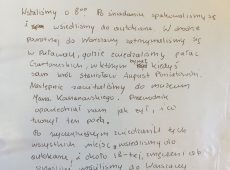 Wstaliśmy o 8⁰⁰. Po śniadaniu spakowaliśmy się
i wsiedliśmy do autokaru. W drodze
powrotnej do Warszawy zatrzymaliśmy się
w Puławach, gdzie zwiedzaliśmy pałac
Czartoryskich, w którym bywał kiedyś
sam król Stanisław August Poniatowski.
Następnie zawitaliśmy do muzeum
Jana Kochanowskiego. Przewodnik
opowiedział nam jak żył, i co
tworzył ten poeta.
Po wyczerpującym zwiedzaniu tych
wszystkich miejsc wsiedliśmy do
autokaru, i około 18-tej, zmęczeni i
wróciliśmy do Warszawy